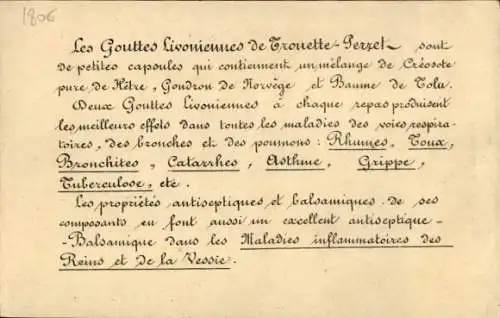 1806
Les Gouttes Livoniennes de Trouette-Perret sont
de petites capsules qui contiennent un mélange de Créosote
pure de Hêtre, Goudron de Norvège et Baume de Tolu.
Deux Gouttes Livoniennes à chaque repas produisent
les meilleurs effets dans toutes les maladies des voies respira-
toires, des bronches et des poumons : Rhumes, Toux,
Bronchites, Catarrhes, Asthme, Grippe,
Tuberculose, etc.
Les propriétés antiseptiques et balsamiques de ses
composants en font aussi un excellent antiseptique-
-Balsamique dans les Maladies inflammatoires des
Reins et de la Vessie.